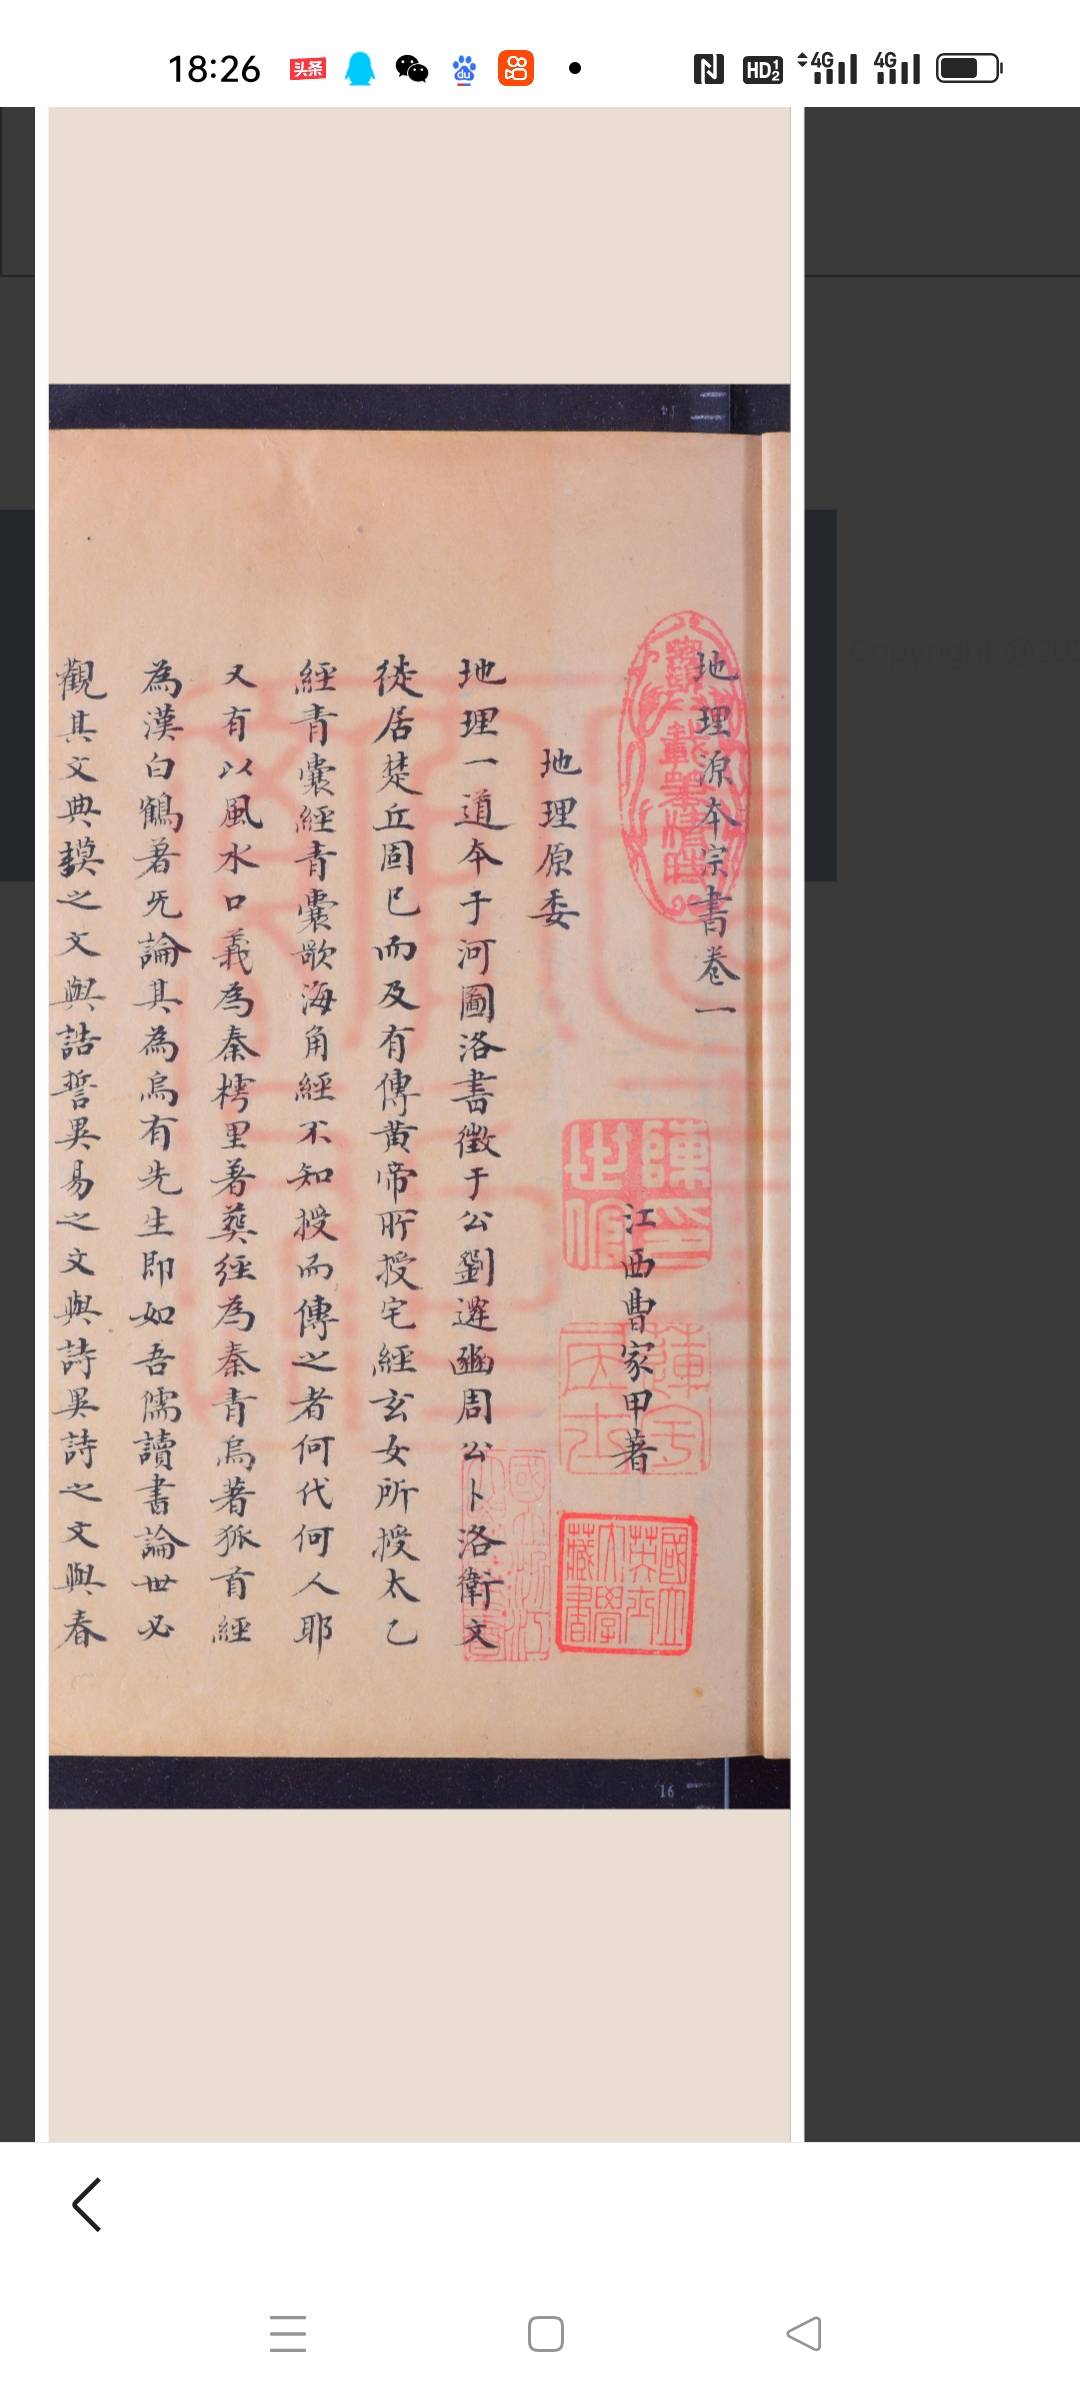 18:26
头条
du
HD 1 2
4G
4G
地理源本宗書卷一
江西曹家甲著
地理原委
地理一道本于河圖洛書徵于公劉遷豳周公卜洛衛文
徙居楚丘固已而及有傳黃帝所授宅經玄女所授太乙
經青囊經青囊歌海角經不知授而傳之者何代何人耶
又有以風水口義為秦樗里著葬經為秦青烏著狐首經
為漢白鶴著旡論其為烏有先生即如吾儒讀書論世必
觀其文典謨之文與誥誓異易之文與詩異詩之文與春
陳印
國立英士大學藏書
16
Copyright @20